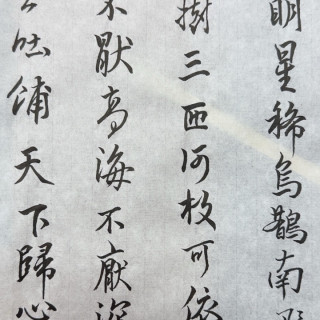 明星稀烏鵲南飛
樹三匝何枝可依
不厭高海不厭深
公吐哺天下歸心